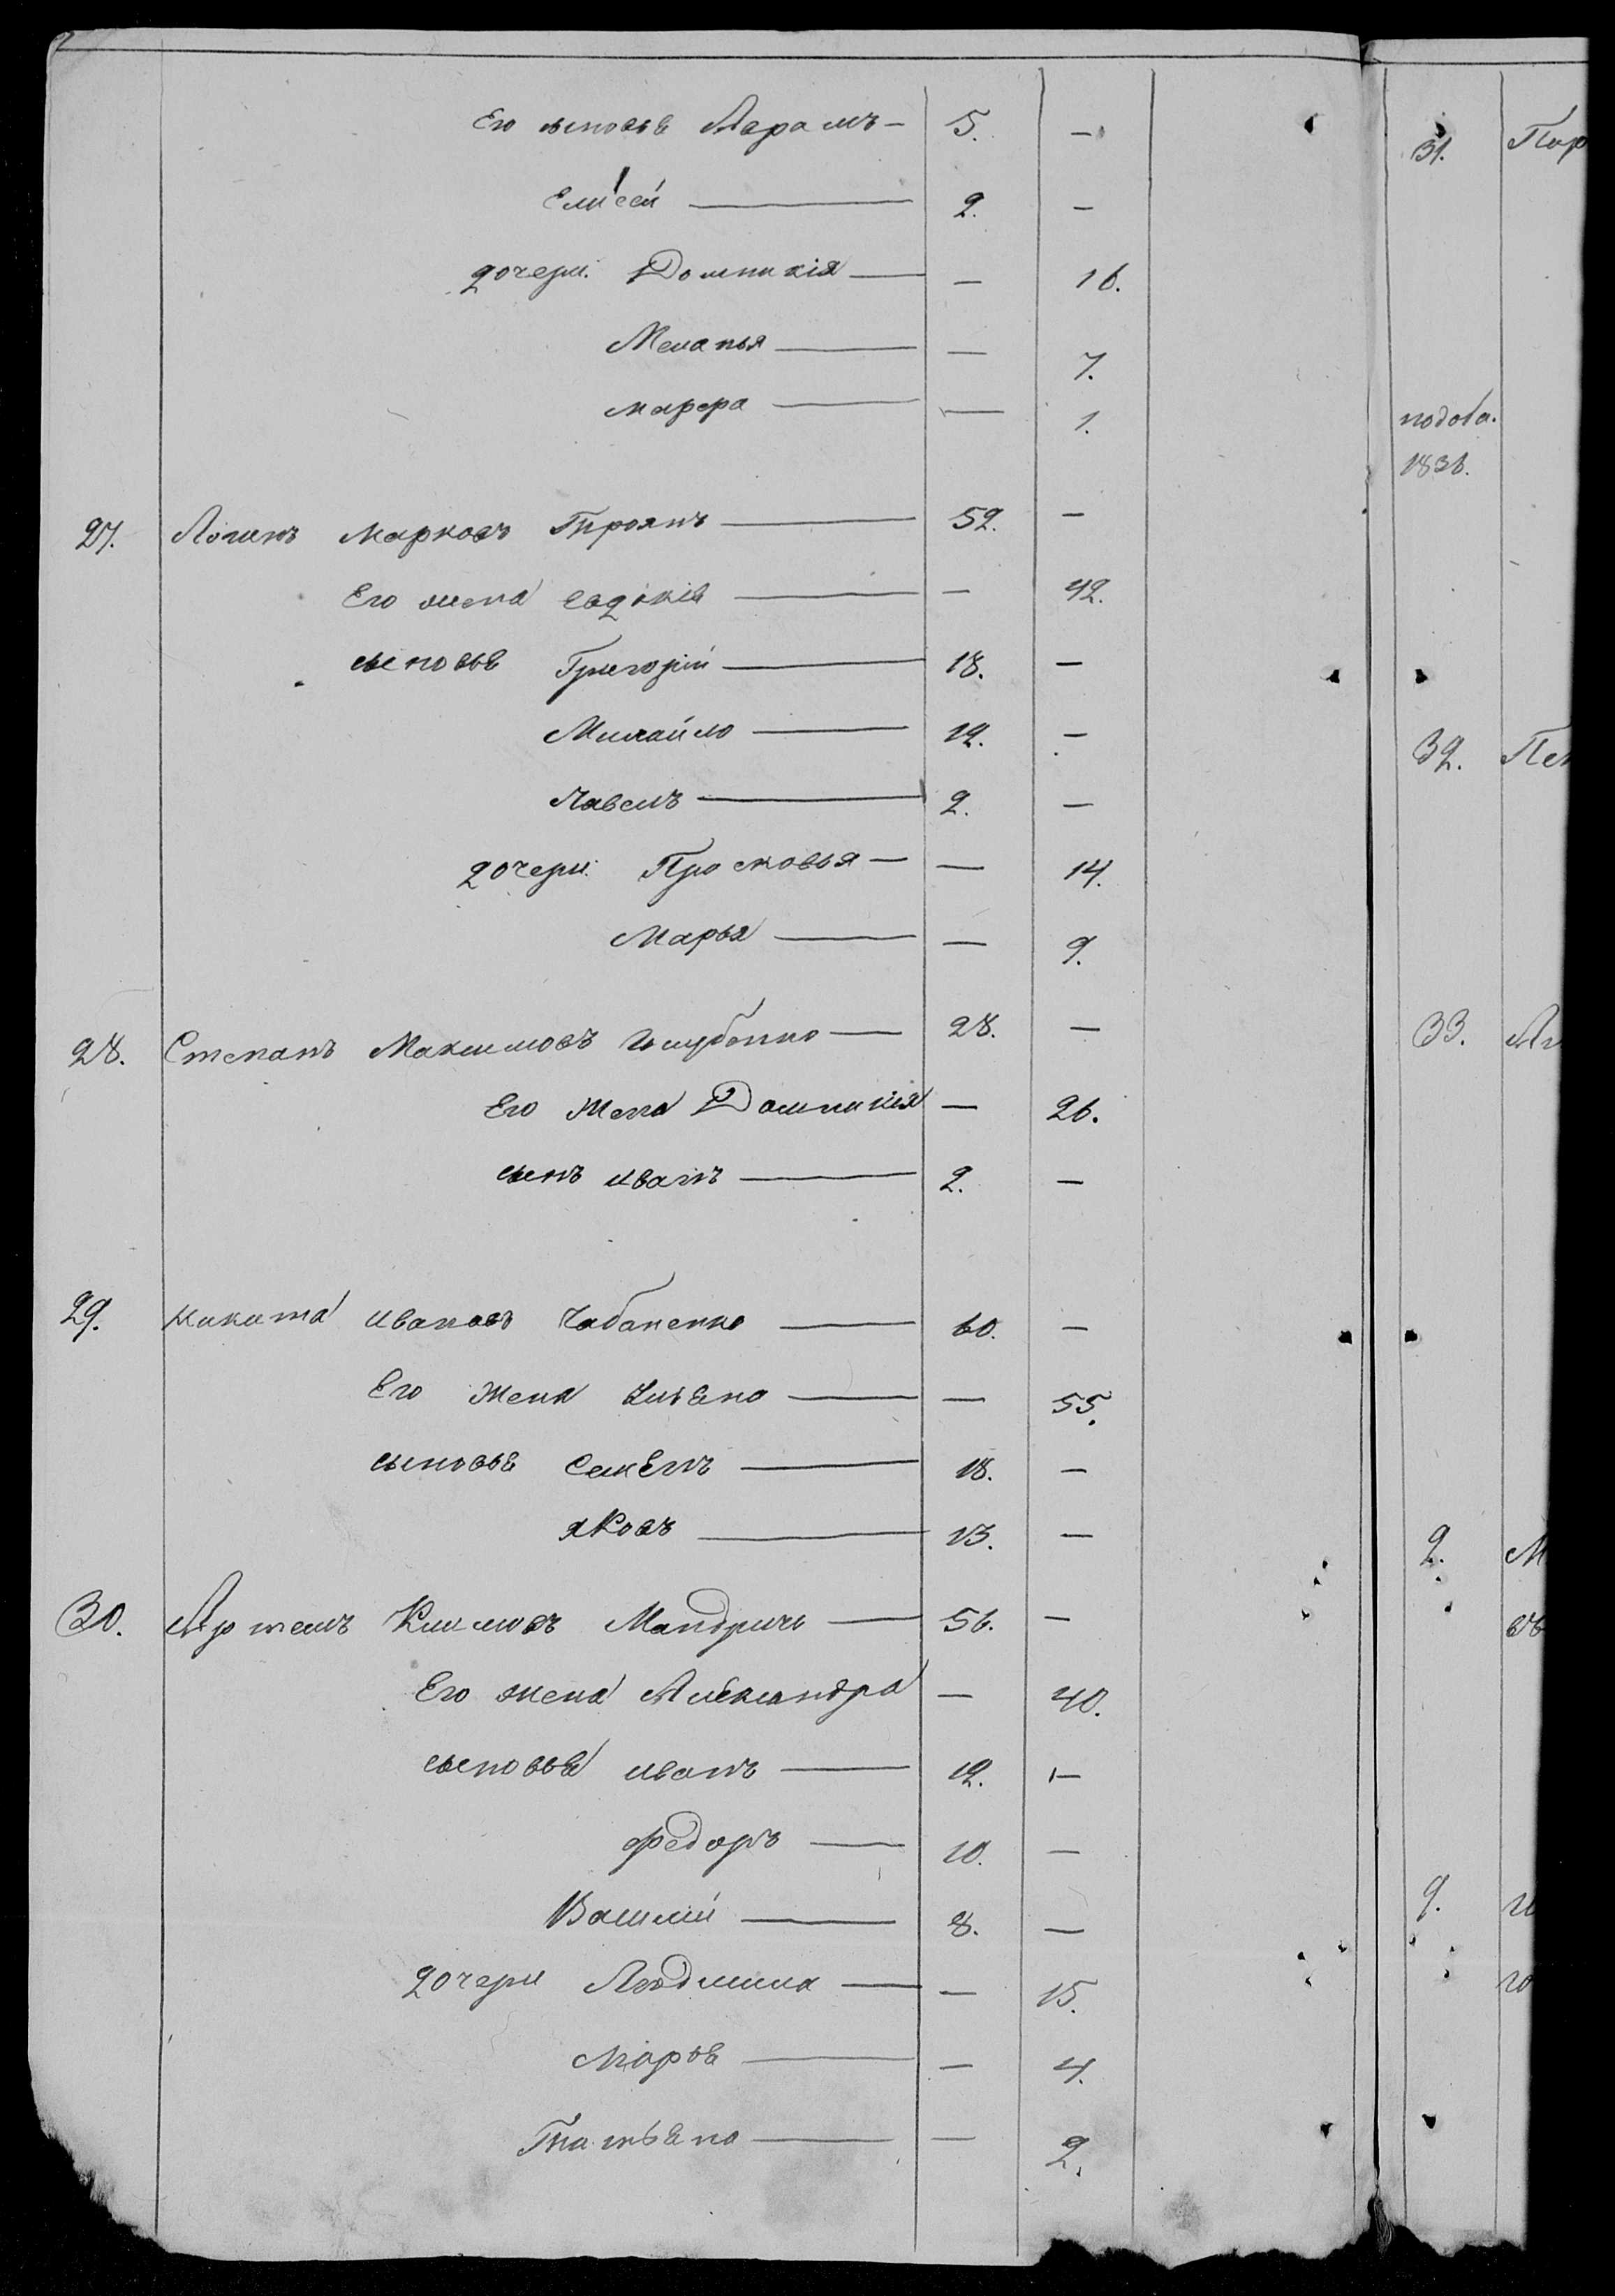 Его сыновья Абрамъ — 5. —
Елисей — 2. —
дочери Домникія — — 16.
Меланья — — 7.
марфа — — 1.
27. Логинъ марковъ Троянъ — 52. —
Его жена евдокія — — 42.
сыновья Григорій — 18. —
Михайло — 12. —
Павелъ — 2. —
дочери Просковья — — 14.
Марья — — 9.
28. Степанъ Максимовъ Голубенко — 28. —
Его жена Домникія — 26.
сынъ иванъ — 2. —
29. никита ивановъ Чабаненко — 60. —
Его жена Ульяна — — 55.
сыновья Семенъ — 18. —
яковъ — 13. —
30. Артемъ Климовъ Мандричъ — 56. —
Его жена Александра — 40.
сыновья иванъ — 12. —
федоръ — 10. —
Василій — 8. —
дочери Людмила — — 15.
Марья — — 4.
Татьяна — — 2.
31. Пар
1836.
32. Пе
33.
2. М
въ
9.
го